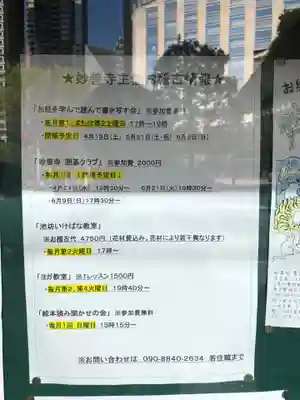 ★妙善寺主催 稽古情報★
「お経を学んで読んで書き写す会」 ※参加費
・毎月第1、または第2土曜日 17時~19時
・開催予定日 4月13日(土) 5月21日(土・祝) 6月9日(日)
「妙善寺 囲碁クラブ」 ※参加費 2000円
19時30分~ 5月21日(火)19時30分~
6月9日(日)17時30分~
「池坊いけばな教室」
※お稽古代 4750円(花材費込み。花材により若干異なります)
・毎月第2火曜日 17時~
「ヨガ教室」 ※1レッスン1500円
・毎月第2、第4火曜日 19時40分~
「絵本読み聞かせの会」 ※参加費無料
・毎月1回 日曜日 15時15分~
※お問い合わせは 090-8840-2634 若住職まで